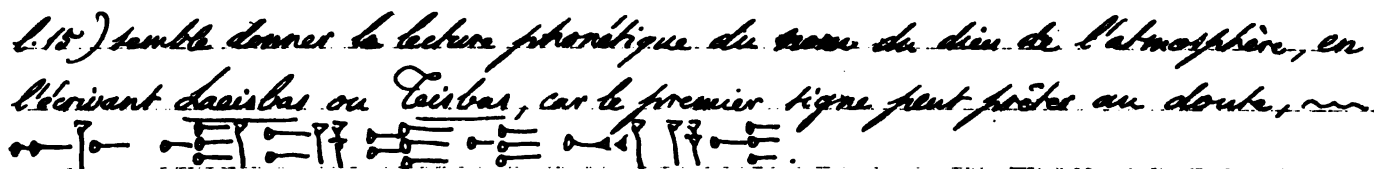 l. 15) semble donner la lecture phonétique du nom du dieu de l'atmosphère, en
l'écrivant Laaisbas ou Teisbas, car le premier signe peut prêter au doute,